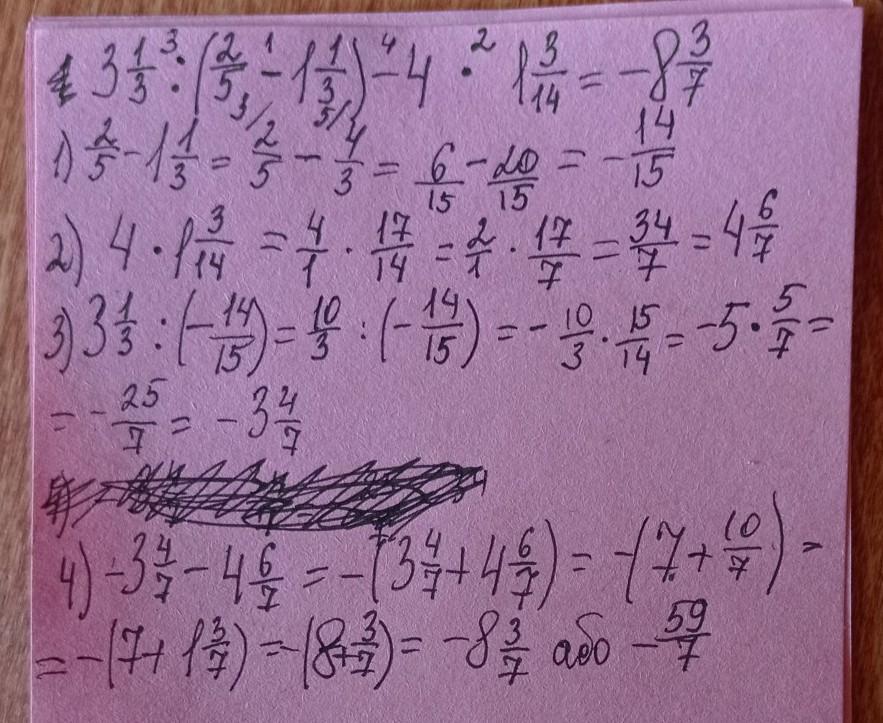 3 1/3 :³ (2/5 -¹ 1 1/3) -⁴ 4 ·² 1 3/14 = -8 3/7
1) 2/5 - 1 1/3 = 2/5 - 4/3 = 6/15 - 20/15 = - 14/15
2) 4 · 1 3/14 = 4/1 · 17/14 = 2/1 · 17/7 = 34/7 = 4 6/7
3) 3 1/3 : (- 14/15) = 10/3 : (- 14/15) = - 10/3 · 15/14 = -5 · 5/7 =
= - 25/7 = -3 4/7
4) -3 4/7 - 4 6/7 = -(3 4/7 + 4 6/7) = -(7 + 10/7) =
= -(7 + 1 3/7) = -(8 + 3/7) = -8 3/7 або - 59/7